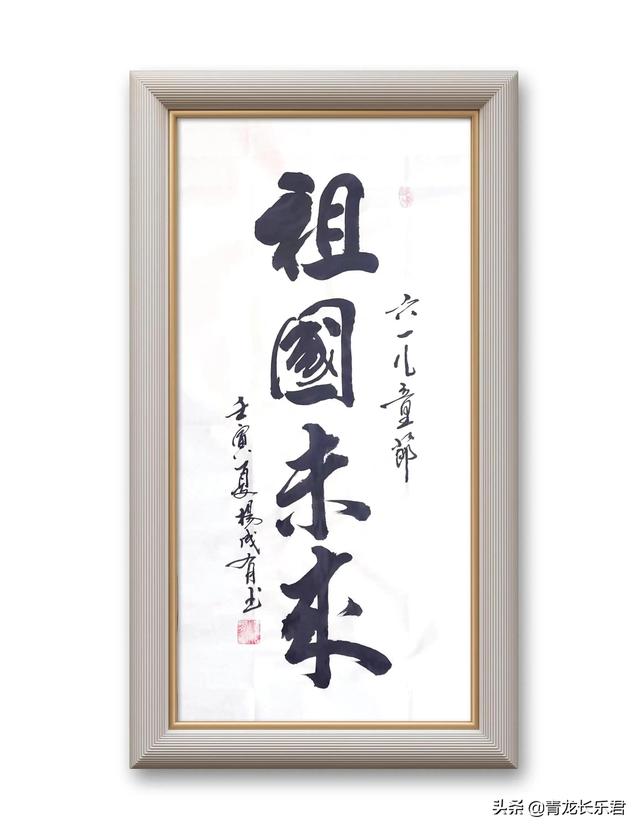 六一儿童節
祖國未來
壬寅夏楊成有
头条 @青龙长乐君